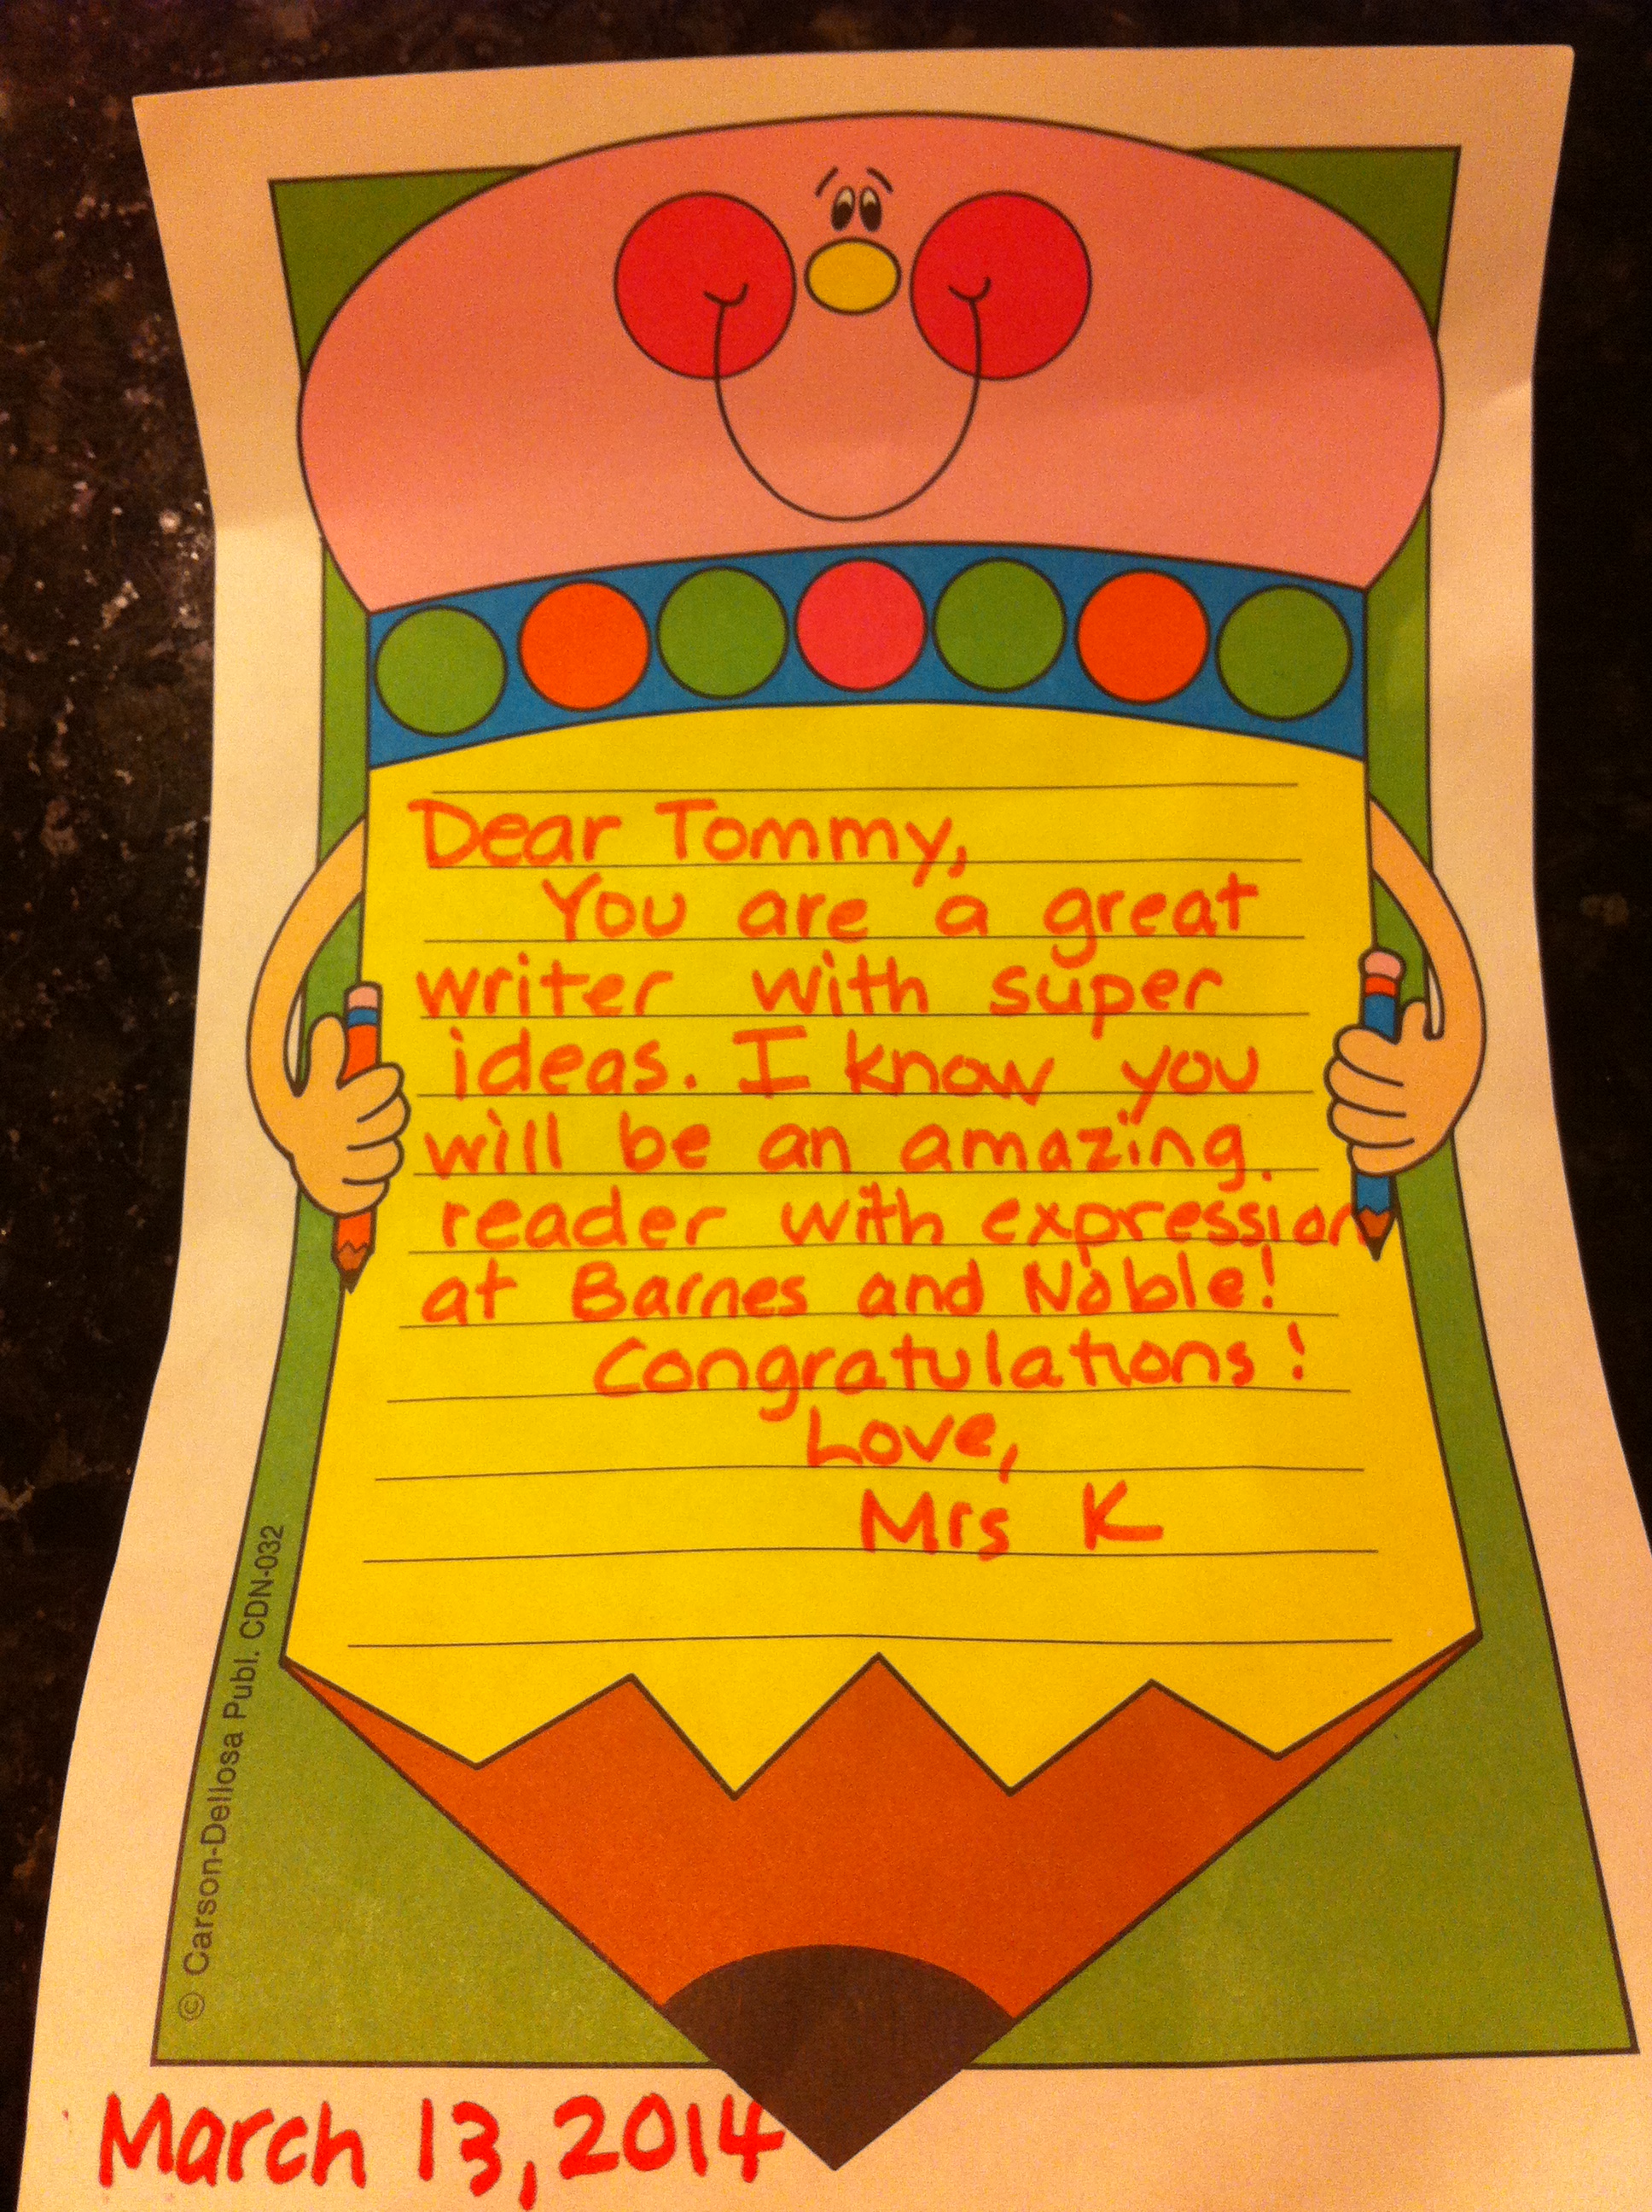 Dear Tommy,
You are a great
writer with super
ideas. I know you
will be an amazing.
reader with expression
at Barnes and Noble!
Congratulations!
Love,
Mrs K
© Carson-Dellosa Publ. CDN-032
March 13, 2014